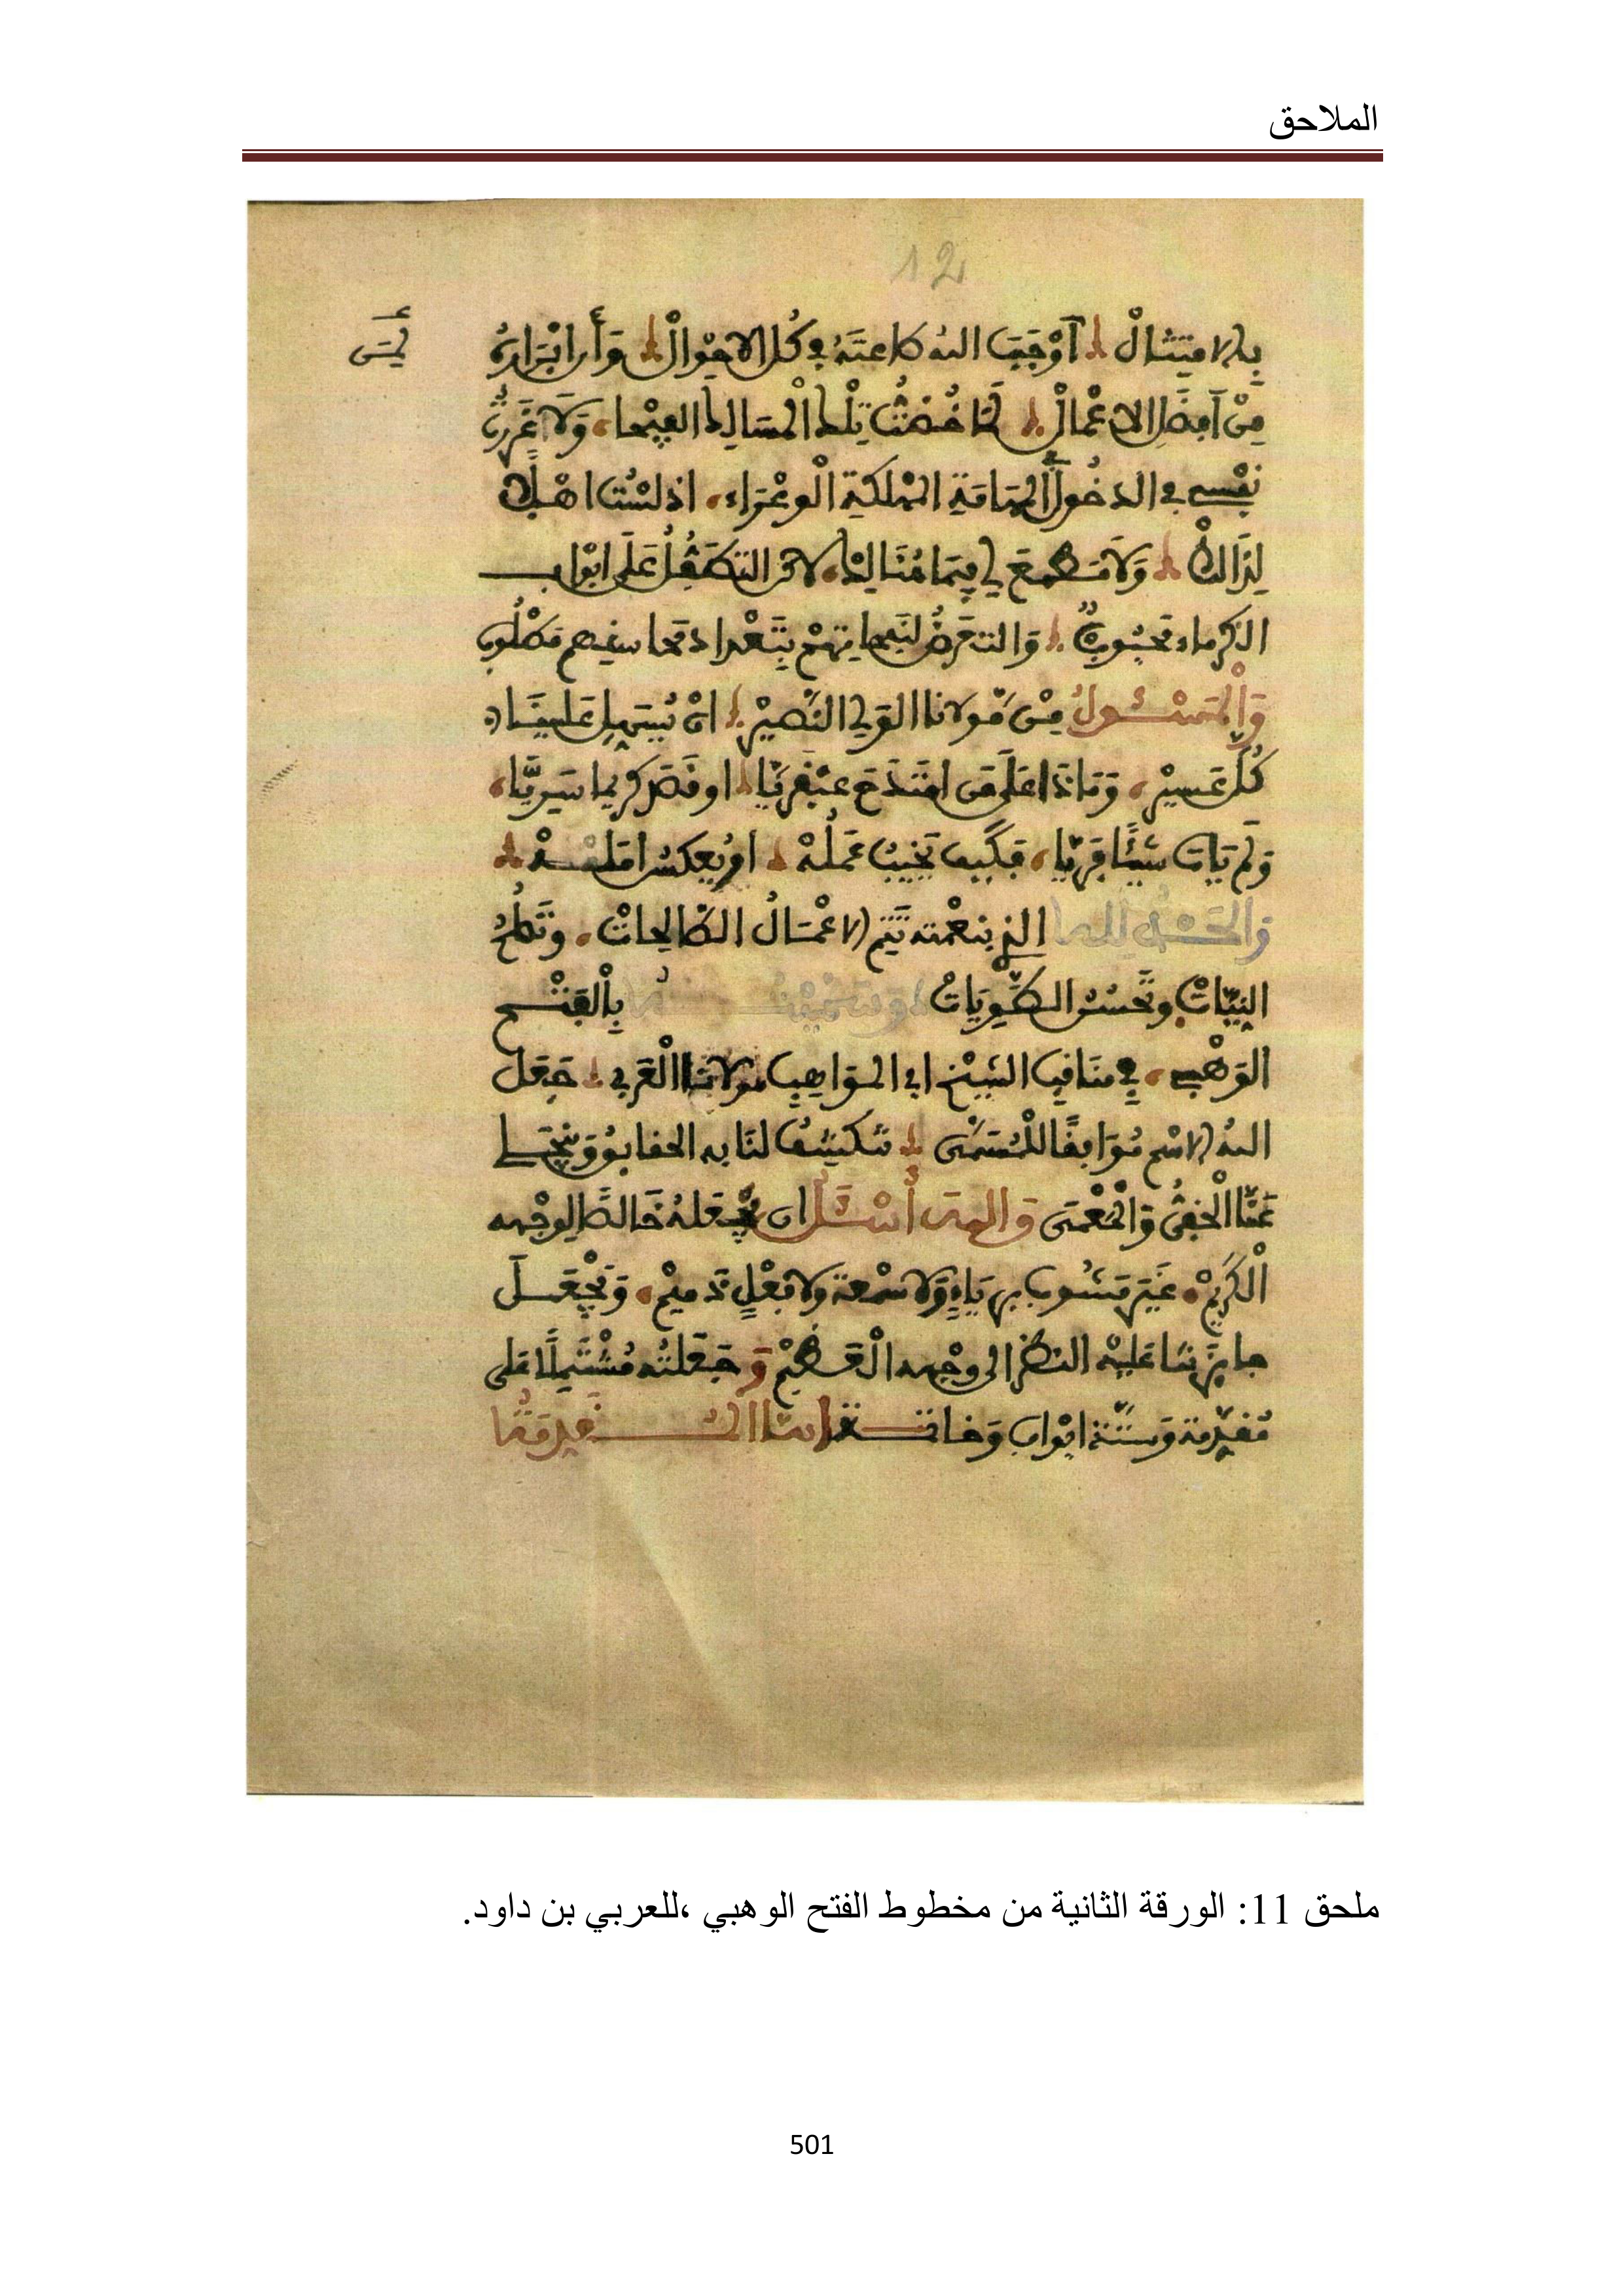 الملاحق
12
بالامتثال أوجب الله طاعته في كل الاحوال وأرا ابراره
من افضل الاعمال لما خضت تلك المسالك الفيحا ولا غررت
نفسي في الدخول المملكة الوعراء اذ لست اهلا
لذالك ولا مطمع لي فيما هنالك لاكن التطفل على ابواب
الكرماء محبوب والتعرض لنفحاتهم بتعداد محاسنهم مطلوب
والمسئول من مولانا الولي النصير ان يسهل علينا
كل عسير وماذا على من امتدح عبقريا او قصد كريما سريا
ولم يات شيئا فريا فكيف يخيب عمله او يعكس امله
والحمد لله الذي بنعمته تتم الاعمال الصالحات وتصلح
النيات وتحسن الطويات وسميته بالفتح
الوهبي في مناقب الشيخ ابي المواهب مولانا العربي جعل
الله الاسم موافقا للمسمى تكشف لنا به الحقايق وينجلي
عنا الخفي والمعمى والله أسئل ان يجعله خالصا لوجهه
الكريم غير مشوب برياء ولا سمعة ولا فعل ذميم ويجعل
جايزتنا عليه النظر الى وجهه العظيم وجعلته مشتملا على
مقدمة وستة ابواب وخاتمة اما المقدمة
ملحق 11: الورقة الثانية من مخطوط الفتح الوهبي ،للعربي بن داود.
501